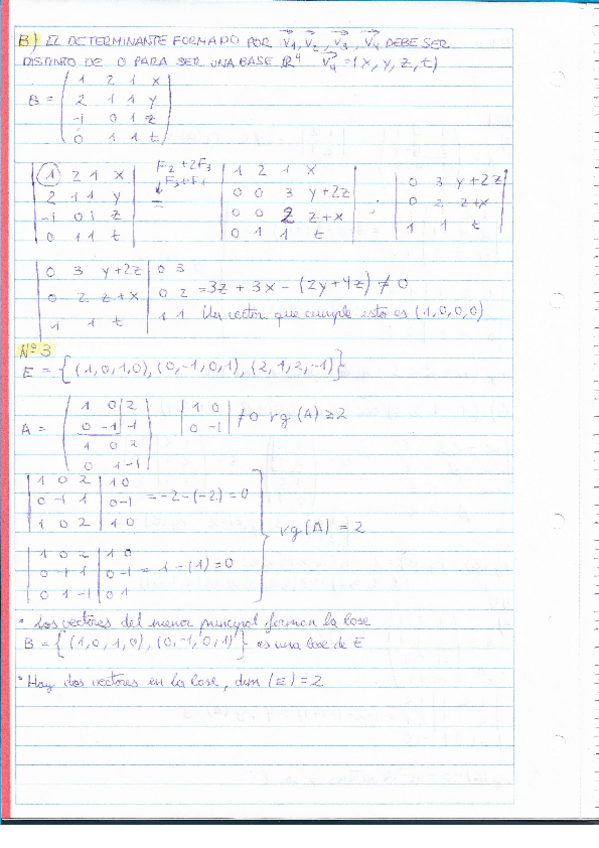 B) EL DETERMINANTE FORMADO POR V1, V2, V3, V4 DEBE SER
DISTINTO DE 0 PARA SER UNA BASE R^4 V4 = (x, y, z, t)
B = ( 1 2 1 x
2 1 1 y
-1 0 1 z
0 1 1 t )
| 1 2 1 x | F2+2F3 | 1 2 1 x | | 0 3 y+2z |
| 2 1 1 y | F3+F1 | 0 0 3 y+2z | | 0 2 z+x |
| -1 0 1 z | = | 0 0 2 z+x | | 1 1 t |
| 0 1 1 t | | 0 1 1 t |
| 0 3 y+2z | 0 3
| 0 2 z+x | 0 2 = 3z + 3x - (2y+4z) ≠ 0
| 1 1 t | 1 1 Un vector que cumple esto es (1,0,0,0)
Nº 3
E = {(1,0,1,0), (0,-1,0,1), (2,1,2,-1)}
A = ( 1 0 2
0 -1 1
1 0 2
0 1 -1 ) | 1 0
0 -1 | ≠0 rg(A) ≥ 2
| 1 0 2 | 1 0
| 0 -1 1 | 0 -1 = -2-(-2) = 0
| 1 0 2 | 1 0
rg(A) = 2
| 1 0 2 | 1 0
| 0 -1 1 | 0 -1 = 1-(1) = 0
| 0 1 -1 | 0 1
• Los vectores del menor principal forman la base
B = {(1,0,1,0), (0,-1,0,1)} es una base de E
• Hay dos vectores en la base, dim (E) = 2